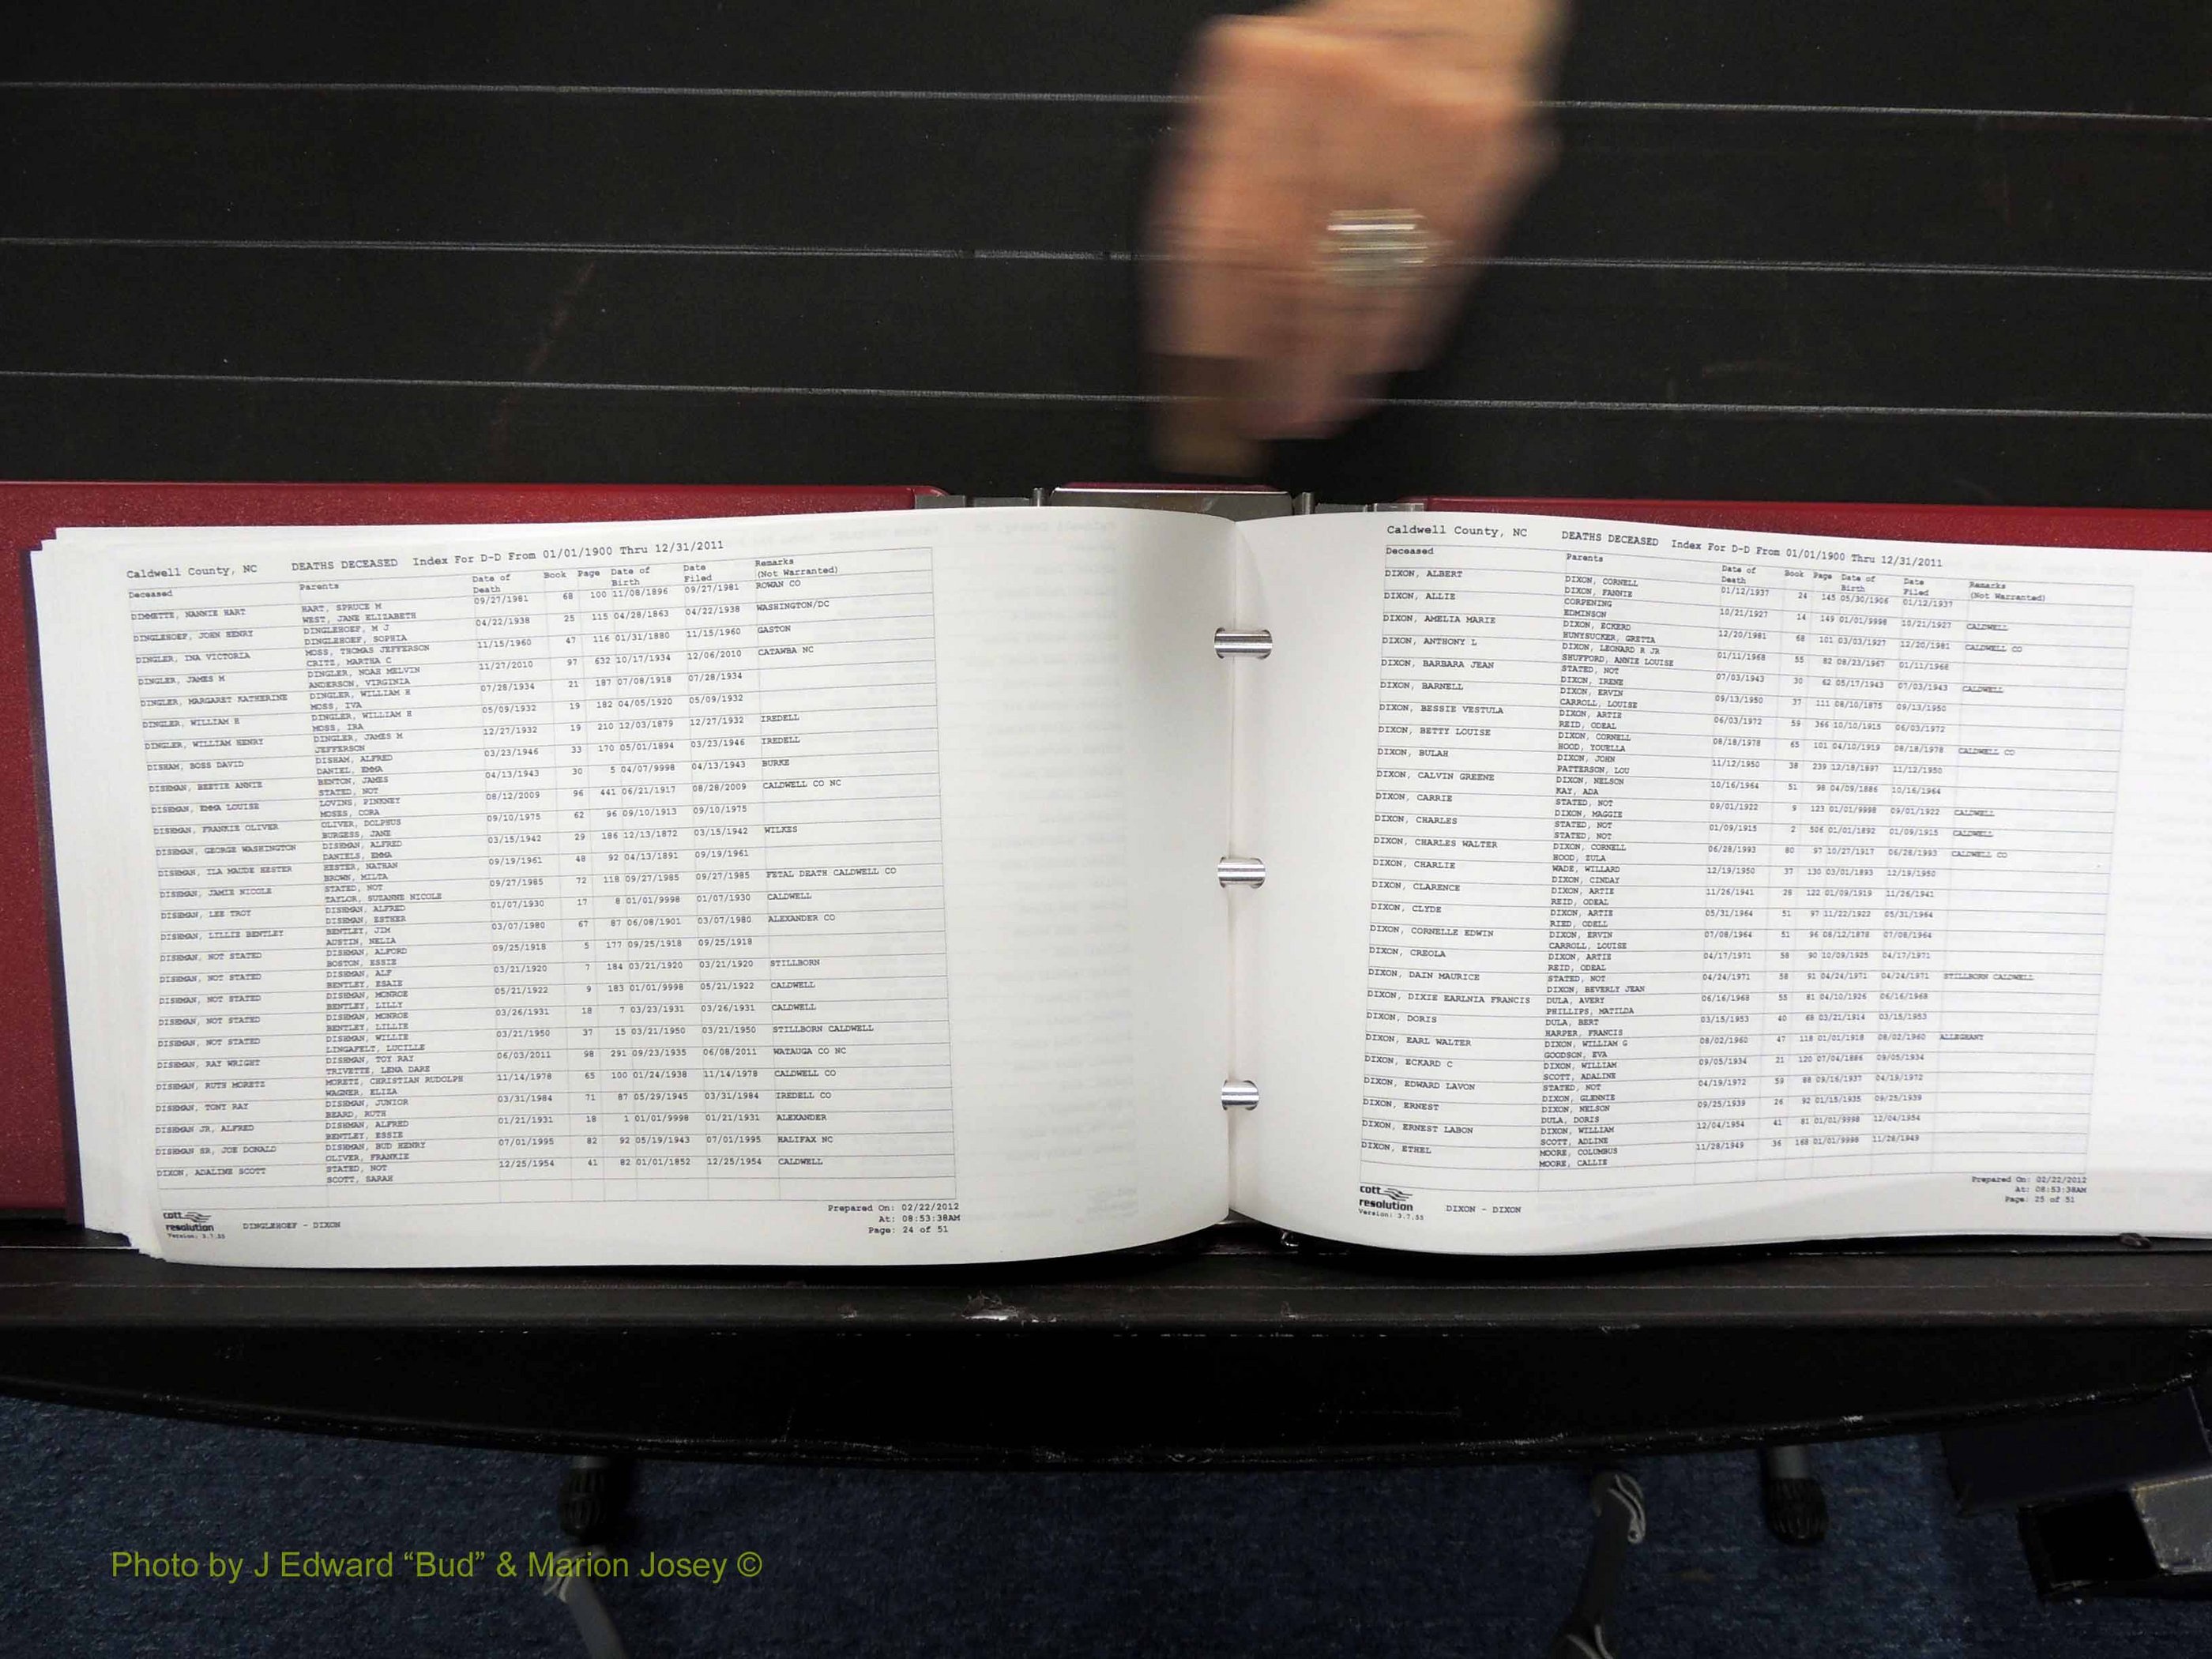 Caldwell County, NC DEATHS DECEASED Index For D-D From 01/01/1900 Thru 12/31/2011
Deceased Parents Date of Death Book Page Date of Birth Date Filed Remarks (Not Warranted)
DIMMETTE, NANNIE HART HART, SPRUCE M 09/27/1981 68 100 11/08/1896 09/27/1981 ROWAN CO
WEST, JANE ELIZABETH
DINGLEHOEF, JOHN HENRY DINGLEHOEF, M J 04/22/1938 25 115 04/28/1863 04/22/1938 WASHINGTON/DC
DINGLEHOEF, SOPHIA
DINGLER, INA VICTORIA MOSS, THOMAS JEFFERSON 11/15/1960 47 116 01/31/1880 11/15/1960 GASTON
CRITZ, MARTHA C
DINGLER, JAMES M DINGLER, NOAH MELVIN 11/27/2010 97 632 10/17/1934 12/06/2010 CATAWBA NC
ANDERSON, VIRGINIA
DINGLER, MARGARET KATHERINE DINGLER, WILLIAM H 07/28/1934 21 187 07/08/1918 07/28/1934
MOSS, IVA
DINGLER, WILLIAM H DINGLER, WILLIAM H 05/09/1932 19 182 04/05/1920 05/09/1932
MOSS, IRA
DINGLER, WILLIAM HENRY DINGLER, JAMES M 12/27/1932 19 210 12/03/1879 12/27/1932 IREDELL
JEFFERSON
DISHAM, BOSS DAVID DISHAM, ALFRED 03/23/1946 33 170 05/01/1894 03/23/1946 IREDELL
DANIEL, EMMA
DISHMAN, BEETIE ANNIE BENTON, JAMES 04/13/1943 30 5 04/07/9998 04/13/1943 BURKE
STATED, NOT
DISHMAN, EMMA LOUISE LOVINS, PINKNEY 08/12/2009 96 441 06/21/1917 08/28/2009 CALDWELL CO NC
MOSES, CORA
DISHMAN, FRANKIE OLIVER OLIVER, DOLPHUS 09/10/1975 62 96 09/10/1913 09/10/1975
BURGESS, JANE
DISHMAN, GEORGE WASHINGTON DISHMAN, ALFRED 03/15/1942 29 186 12/13/1872 03/15/1942 WILKES
DANIELS, EMMA
DISHMAN, ILA MAUDE HESTER HESTER, NATHAN 09/19/1961 48 92 04/13/1891 09/19/1961
BROWN, MILTA
DISHMAN, JAMIE NICOLE STATED, NOT 09/27/1985 72 118 09/27/1985 09/27/1985 FETAL DEATH CALDWELL CO
TAYLOR, SUZANNE NICOLE
DISHMAN, LEE TROY DISHMAN, ALFRED 01/07/1930 17 8 01/01/9998 01/07/1930 CALDWELL
DISHMAN, ESTHER
DISHMAN, LILLIE BENTLEY BENTLEY, JIM 03/07/1980 67 87 06/08/1901 03/07/1980 ALEXANDER CO
AUSTIN, NELIA
DISHMAN, NOT STATED DISHMAN, ALFORD 09/25/1918 5 177 09/25/1918 09/25/1918
BOSTON, ESSIE
DISHMAN, NOT STATED DISHMAN, ALF 03/21/1920 7 184 03/21/1920 03/21/1920 STILLBORN
BENTLEY, ESAIE
DISHMAN, NOT STATED DISHMAN, MONROE 05/21/1922 9 183 01/01/9998 05/21/1922 CALDWELL
BENTLEY, LILLY
DISHMAN, NOT STATED DISHMAN, MONROE 03/26/1931 18 7 03/23/1931 03/26/1931 CALDWELL
BENTLEY, LILLIE
DISHMAN, NOT STATED DISHMAN, WILLIE 03/21/1950 37 15 03/21/1950 03/21/1950 STILLBORN CALDWELL
LINGAFELT, LUCILLE
DISHMAN, RAY WRIGHT DISHMAN, TOY RAY 06/03/2011 98 291 09/23/1935 06/08/2011 WATAUGA CO NC
TRIVETTE, LENA DARE
DISHMAN, RUTH MORETZ MORETZ, CHRISTIAN RUDOLPH 11/14/1978 65 100 01/24/1938 11/14/1978 CALDWELL CO
WAGNER, ELIZA
DISHMAN, TONY RAY DISHMAN, JUNIOR 03/31/1984 71 87 05/29/1945 03/31/1984 IREDELL CO
BEARD, RUTH
DISHMAN JR, ALFRED DISHMAN, ALFRED 01/21/1931 18 1 01/01/9998 01/21/1931 ALEXANDER
BENTLEY, ESSIE
DISHMAN SR, JOE DONALD DISHMAN, BUD HENRY 07/01/1995 82 92 05/19/1943 07/01/1995 HALIFAX NC
OLIVER, FRANKIE
DIXON, ADALINE SCOTT STATED, NOT 12/25/1954 41 82 01/01/1852 12/25/1954 CALDWELL
SCOTT, SARAH
cott resolution Version: 3.7.55
DINGLEHOEF - DIXON
Prepared On: 02/22/2012
At: 08:53:38AM
Page: 24 of 51
Caldwell County, NC DEATHS DECEASED Index For D-D From 01/01/1900 Thru 12/31/2011
Deceased Parents Date of Death Book Page Date of Birth Date Filed Remarks (Not Warranted)
DIXON, ALBERT DIXON, CORNELL 01/12/1937 24 145 05/30/1906 01/12/1937
DIXON, FANNIE
DIXON, ALLIE CORPENING 10/21/1927 14 149 01/01/9998 10/21/1927 CALDWELL
EDMINSON
DIXON, AMELIA MARIE DIXON, ECKERD 12/20/1981 68 101 03/03/1927 12/20/1981 CALDWELL CO
HUNYSUCKER, GRETTA
DIXON, ANTHONY L DIXON, LEONARD R JR 01/11/1968 55 82 08/23/1967 01/11/1968
SHUFFORD, ANNIE LOUISE
DIXON, BARBARA JEAN STATED, NOT 07/03/1943 30 62 05/17/1943 07/03/1943 CALDWELL
DIXON, IRENE
DIXON, BARNELL DIXON, ERVIN 09/13/1950 37 111 08/10/1875 09/13/1950
CARROLL, LOUISE
DIXON, BESSIE VESTULA DIXON, ARTIE 06/03/1972 59 366 10/10/1915 06/03/1972
REID, ODEAL
DIXON, BETTY LOUISE DIXON, CORNELL 08/18/1978 65 101 04/10/1919 08/18/1978 CALDWELL CO
HOOD, YOUELLA
DIXON, BULAH DIXON, JOHN 11/12/1950 38 239 12/18/1897 11/12/1950
PATTERSON, LOU
DIXON, CALVIN GREENE DIXON, NELSON 10/16/1964 51 98 04/09/1886 10/16/1964
KAY, ADA
DIXON, CARRIE STATED, NOT 09/01/1922 9 123 01/01/9998 09/01/1922 CALDWELL
DIXON, MAGGIE
DIXON, CHARLES STATED, NOT 01/09/1915 2 506 01/01/1892 01/09/1915 CALDWELL
STATED, NOT
DIXON, CHARLES WALTER DIXON, CORNELL 06/28/1993 80 97 10/27/1917 06/28/1993 CALDWELL CO
HOOD, ZULA
DIXON, CHARLIE WADE, WILLARD 12/19/1950 37 130 03/01/1893 12/19/1950
DIXON, CINDAY
DIXON, CLARENCE DIXON, ARTIE 11/26/1941 28 122 01/09/1919 11/26/1941
REID, ODEAL
DIXON, CLYDE DIXON, ARTIE 05/31/1964 51 97 11/22/1922 05/31/1964
RIED, ODELL
DIXON, CORNELLE EDWIN DIXON, ERVIN 07/08/1964 51 96 08/12/1878 07/08/1964
CARROLL, LOUISE
DIXON, CREOLA DIXON, ARTIE 04/17/1971 58 90 10/09/1925 04/17/1971
REID, ODEAL
DIXON, DAIN MAURICE STATED, NOT 04/24/1971 58 91 04/24/1971 04/24/1971 STILLBORN CALDWELL
DIXON, BEVERLY JEAN
DIXON, DIXIE EARLNIA FRANCIS DULA, AVERY 06/16/1968 55 81 04/10/1926 06/16/1968
PHILLIPS, MATILDA
DIXON, DORIS DULA, BERT 03/15/1953 40 68 03/21/1914 03/15/1953
HARPER, FRANCIS
DIXON, EARL WALTER DIXON, WILLIAM G 08/02/1960 47 118 01/01/1918 08/02/1960 ALLEGHANY
GOODSON, EVA
DIXON, ECKARD C DIXON, WILLIAM 09/05/1934 21 120 07/04/1886 09/05/1934
SCOTT, ADALINE
DIXON, EDWARD LAVON STATED, NOT 04/19/1972 59 88 09/16/1937 04/19/1972
DIXON, GLENNIE
DIXON, ERNEST DIXON, NELSON 09/25/1939 26 92 01/15/1935 09/25/1939
DULA, DORIS
DIXON, ERNEST LABON DIXON, WILLIAM 12/04/1954 41 81 01/01/9998 12/04/1954
SCOTT, ADLINE
DIXON, ETHEL MOORE, COLUMBUS 11/28/1949 36 168 01/01/9998 11/28/1949
MOORE, CALLIE
cott resolution Version: 3.7.55
DIXON - DIXON
Prepared On: 02/22/2012
At: 08:53:38AM
Page: 25 of 51
Photo by J Edward “Bud” & Marion Josey ©